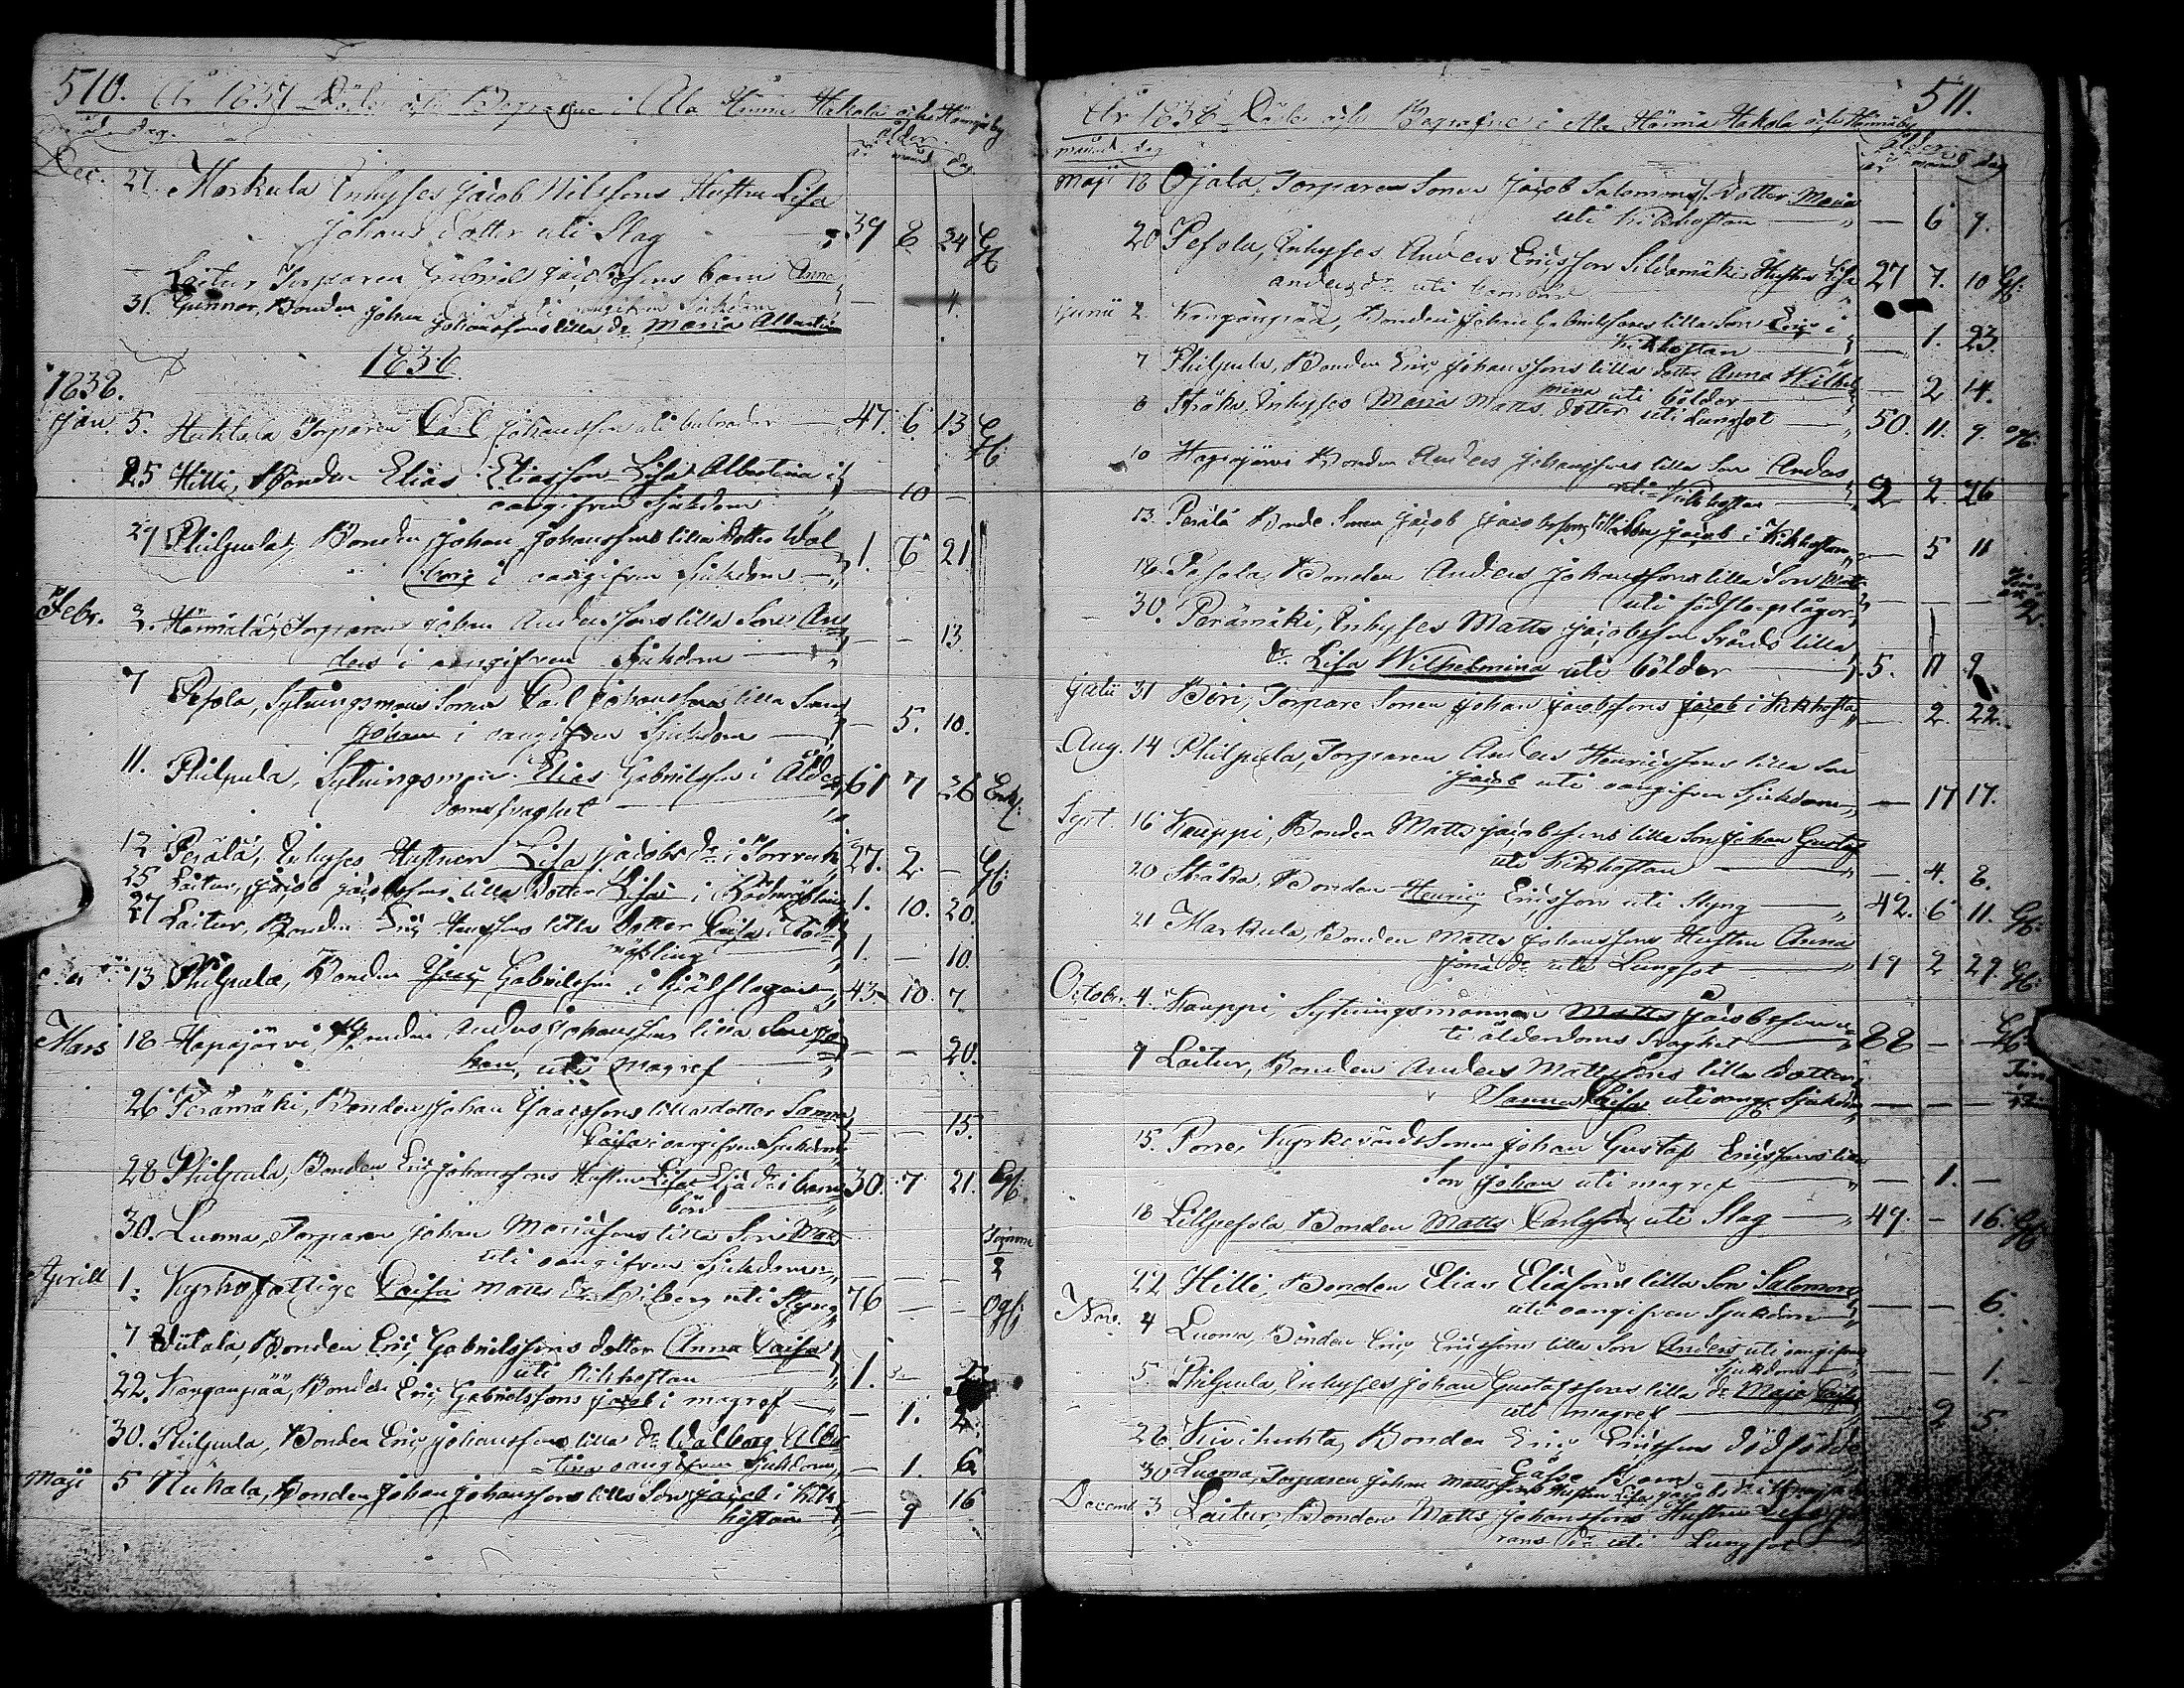 510. År 1837 Döde och Begrafne i Ala Härmä Hakola och Härmäby
månad dag. ålder
år månad dag
Dec. 27. Markula Inhyses Jacob Nilssons Hustru Lisa
Johans dotter uti Slag 39 8 24 Gf.
Laitur Torparen Gabriel Jacobssons barn Anna
4.
31. Gunnar, Bonden Johan Johanssons lilla dr Maria Albertin
1838.
1838.
Jan. 5. Huhtala Torparen Carl Johansson uti 47. 6 13 Gf.
25 Hilli, Bonden Elias Eliasson Lisa Albertina i
oangifven Sjukdom — 10 —
29 Philpula, Bonden Johan Johanssons lilla Dotter Wal
borg i oangifven Sjukdom — 1. 6 21.
Febr. 3. Härmälä, Torparen Johan Anderssons lilla Son An
ders i oangifven Sjukdom — — — 13.
7 Pesola, Sytningsmans Sonen Carl Johanssons lilla Son
Johan i oangifven Sjukdom — — 5. 10.
11. Philpula, Sytningsman Elias Gabrielsson i Ålder
domsvaghet 61 7 26 Enkl.
12 Perälä, Inhyses Hustrun Lisa Jacobs dr i Torrvärk 27. 2 — Gf.
25 Laitur, Jacob Jacobssons lilla Dotter Lisa i Rödmässling 1. 10. 20.
27 Laitur, Bonden Eric Hanssons lilla Dotter Caisa i Röd
mässling 1. — 10.
13 Philpula, Bonden Gabrielsson i 43 10. 7
Mars 18 Hapajärvi, Bonden Anders Johanssons lilla Son Jo
han, uti Magref — — 20.
26 Perämäki, Bonden Johan Isaacssons lilla dotter Sanna
Caisa i oangifven Sjukdom — — 15.
28 Philpula, Bonden Eric Johanssons Hustru Lisa Elia dr i barns
börd 30. 7 21. Gf.
30. Luoma, Torparen Johan Mariassons lilla Son Matts
uti oangifven Sjukdom — — — Timme
2
Aprill 1. Kyrkofattige Caisa Matts dr Wiberg uti Styng 76 — — Ogf.
7 Viitala, Bonden Eric Gabrielssons dotter Anna Caisa
uti Kikhostan 1.
22. Kangaspää, Bonden Eric Gabrielssons Jacob i magref — — 1. 2.
30. Philpula, Bonden Eric Johanssons lilla dr Walborg Alber
tina oangifven Sjukdom — 1. 6
Maji 5 Niikala, Bonden Johan Johanssons lilla Son Jacob i Kik
hostan — 9 16
511.
År 1838 Döde och Begrafne i Ala Härmä Hakola och Härmäby
månad dag ålder
år månad dag
Maji 18 Ojala, Torpare Sonen Jacob Salomons. Dotter Maria
uti Kikhostan — 6 9.
20 Pesola, Inhyses Anders Ericsson Sildamäki Hustru Lisa
anders dr uti barnbörd 27 7. 10 Gf.
Junii 2. Kangaspää, Bonden Johan Gabrielssons lilla Son Eric i
Kikhostan — 1. 23.
7 Philpula, Bonden Eric Johanssons lilla dotter Anna Wilhel
mina uti bölder — 2 14.
8 Ståka, Inhyses Maria Matts dotter uti Lungsot — 50. 11. 9. oGf.
10 Hapajärvi Bonden Anders Johanssons lilla Son Anders
uti Kikhostan 2 2. 26
13. Perälä Bonde Sonen Jacob Jacobssons lilla Son Jacob i Kikhostan — 5 11
18. Pesola, Bonden Anders Johanssons lilla Son Matts
uti födslo plågor — — —
30. Perämäki, Inhyses Matts Jacobsson Svärds lilla
dr Lisa Wilhelmina uti bölder 5. 11 9
Julii 31 Böri, Torpare Sonen Johan Jacobssons Jacob i Kikhosta — 2. 22.
Aug. 14 Philpula, Torparen Anders Henricssons lilla Son
Jacob uti oangifven Sjukdom — 17 17.
Sept. 16 Kauppi, Bonden Matts Jacobssons lilla Son Johan Gustaf
uti Kikhostan — 4. 8.
20 Ståka, Bonden Henric Ericsson uti Styng — 42. 6 11. Gf.
21 Markula, Bonden Matts Johanssons Hustru Anna
Jona dr uti Lungsot — 19 2 29. Gf.
October 4. Kauppi, Sytningsmannen Matts Jacobsson u
ti ålderdoms Svaghet 88 — — Gf.
9 Laitur, Bonden Anders Mattssons lilla Dotter
Sanna Caisa uti oangf. Sjukdom — — —
15. Porre, Kyrkovärds Sonen Johan Gustaf Ericssons lilla
Son Johan uti magref — 1. —
18 Lillpesola, Bonden Matts Carlsson uti Slag — 49. — 16. Gf.
22 Hilli, Bonden Elias Eliassons lilla Son Salomon
uti oangifven Sjukdom — — 6.
Nov. 4 Luoma, Bonden Eric Ericssons lilla Son Anders uti oangifven
Sjukdom — — 1.
5. Philpula, Inhyses Johan Gustafssons lilla dr Maja Caisa
uti magref — 2 5.
26. Kivihuhta, Bonden Eric Ericssons dödfödde
Gosse Barn
30 Luoma, Torparen Johan Mattssons Hustru Lisa Jacobs dr i
Decemb. 3. Laitur, Bonden Matts Johanssons Hustru Lisa
rans dr uti Lungsot